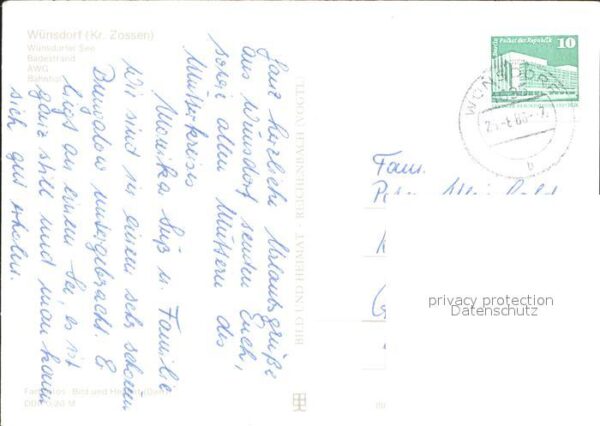 Wünsdorf (Kr. Zossen)
Wünsdorfer See
Badestrand
AWG
Bahnhof
Ganz herzliche Urlaubsgrüße
aus Wünsdorf senden Euch,
sowie allen Müttern des
Mütterkreises
Monika Süß u. Familie
Wir sind in einem sehr schönen
Bungalow untergebracht. Er
liegt an einem See, es ist
ganz still und man kann
sich gut erholen.
BILD UND HEIMAT · REICHENBACH (VOGTL)
Palast der Republik
10
WÜNSDORF
b
Fam.
privacy protection
Datenschutz